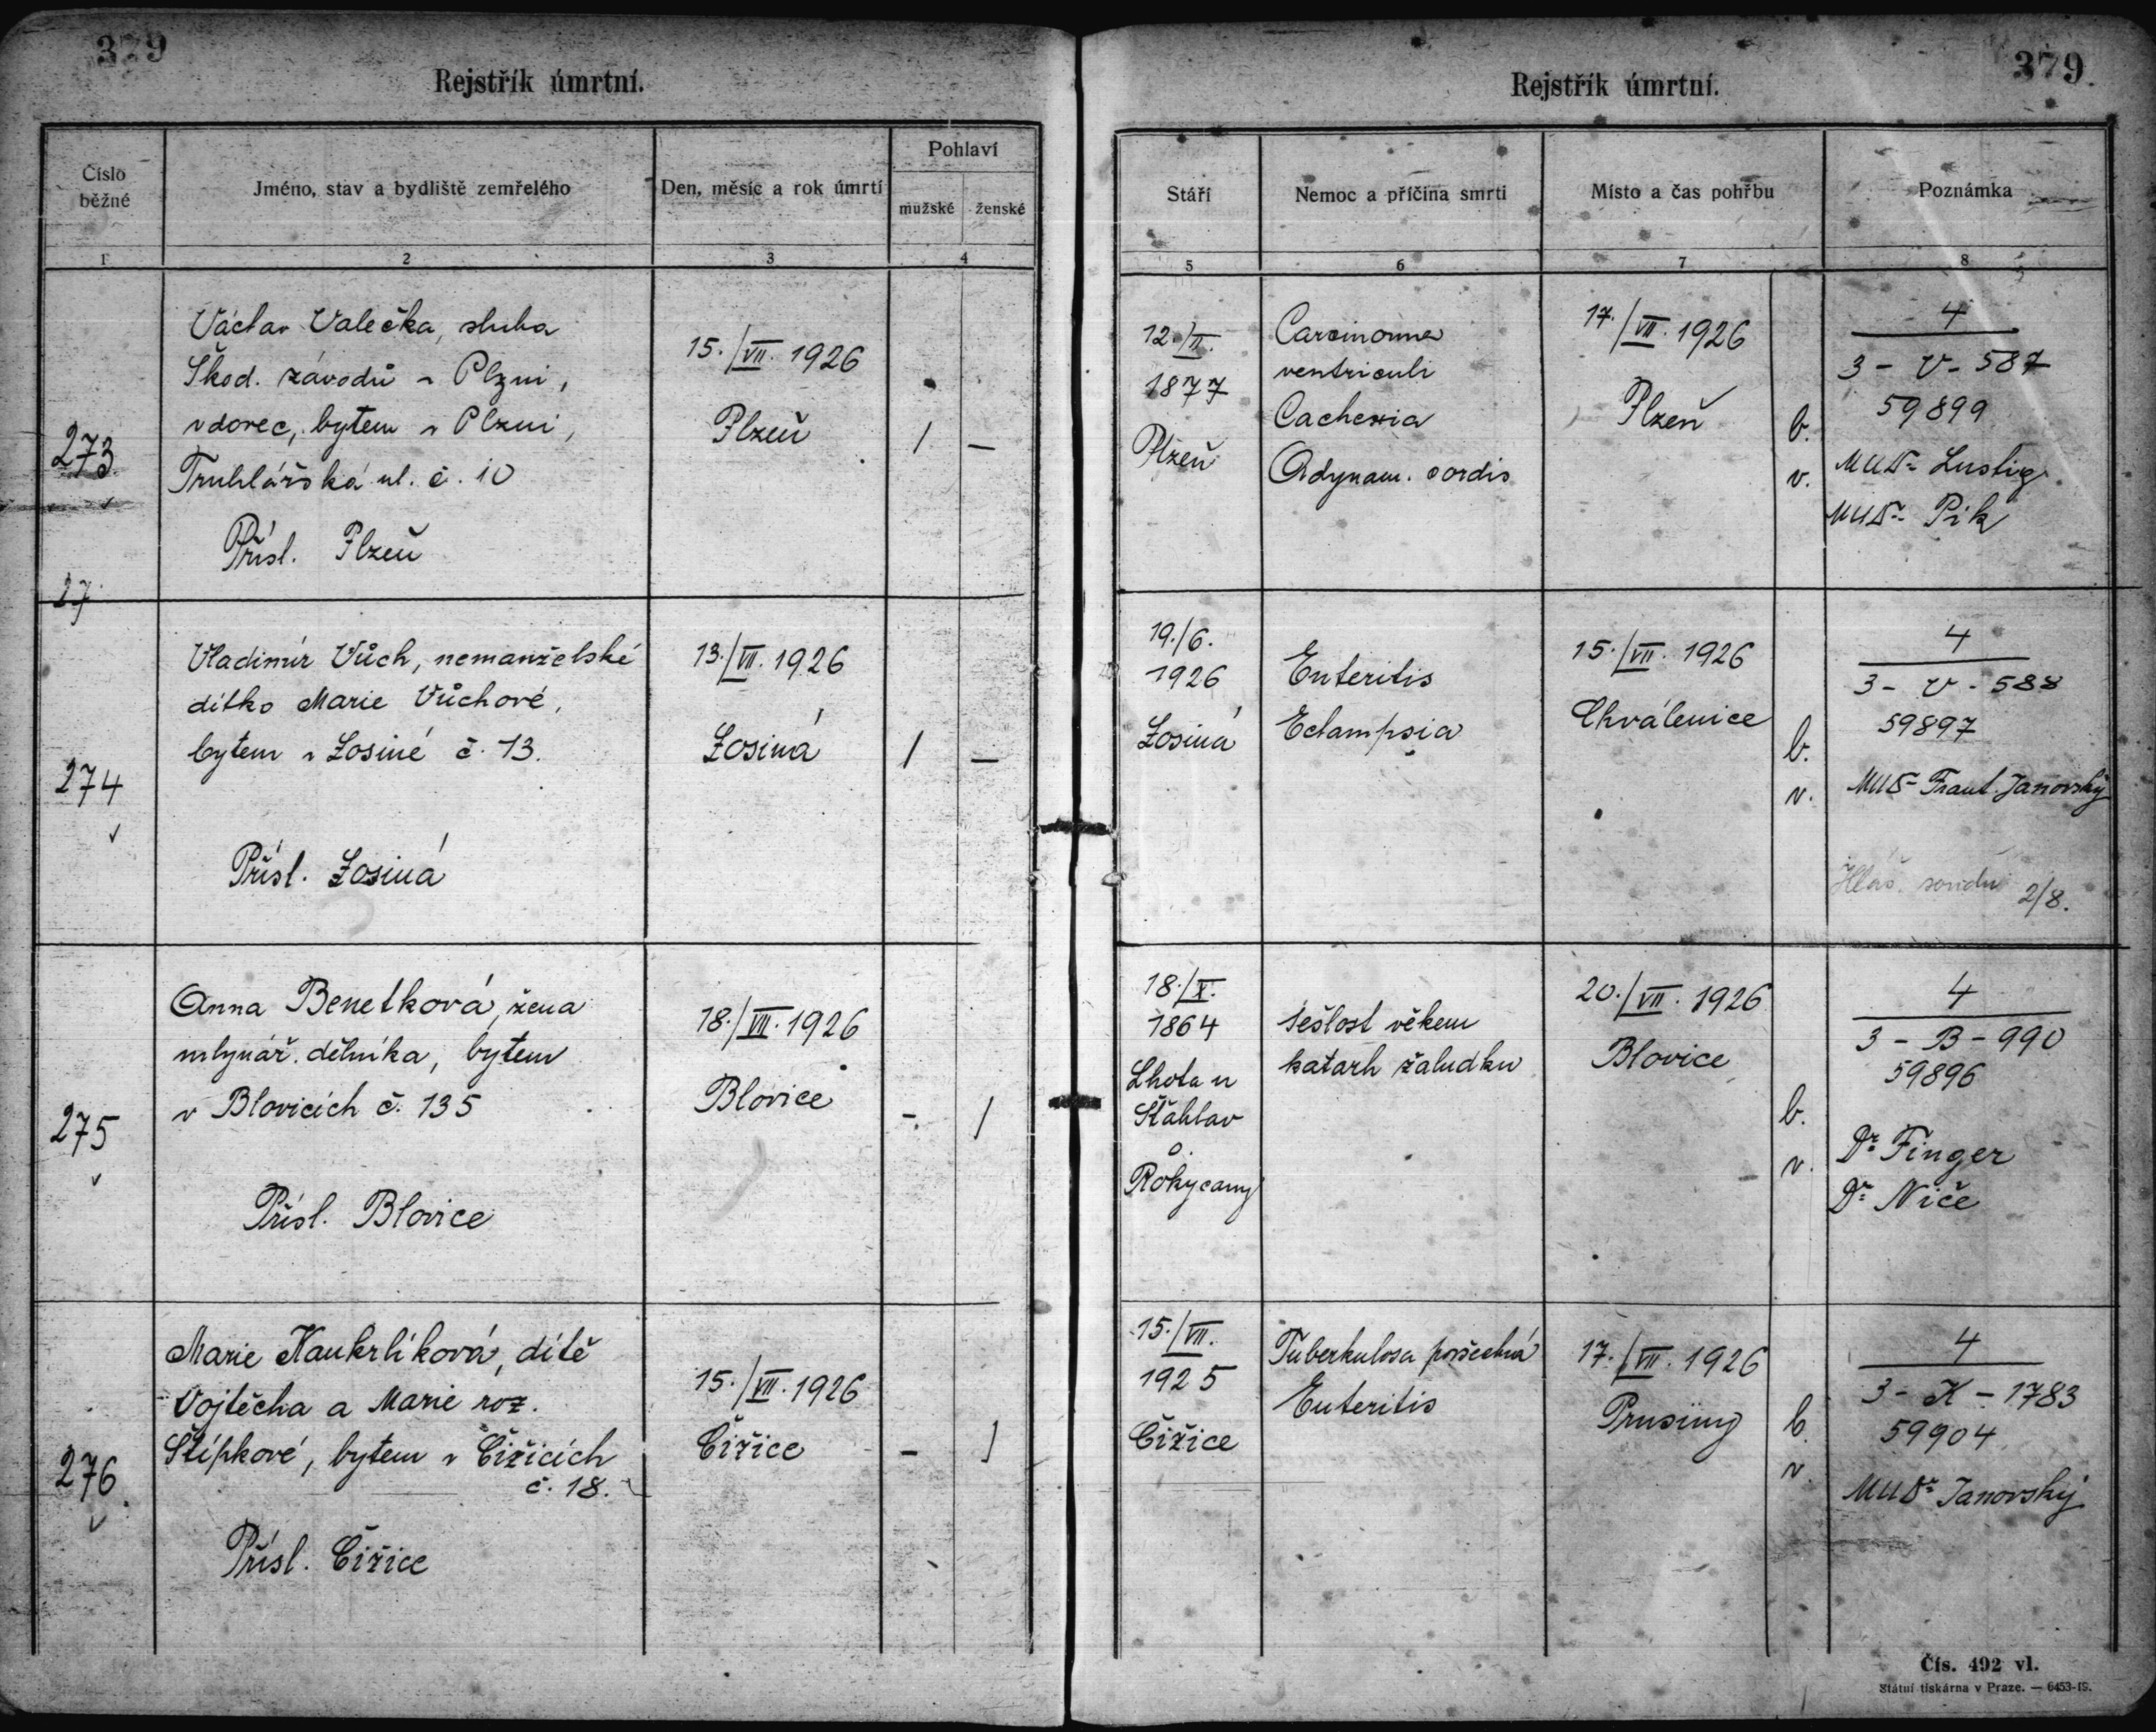 379
Rejstřík úmrtní.
Číslo běžné
Jméno, stav a bydliště zemřelého
Den, měsíc a rok úmrtí
Pohlaví
mužské
ženské
1
2
3
4
273
Václav Valečka, sluha
Škod. závodů v Plzni,
vdovec, bytem v Plzni,
Truhlářská ul. č. 10
Přísl. Plzeň
15./VII. 1926
Plzeň
/
—
27
274
Vladimír Vůch, nemanželské
dítko Marie Vůchové,
bytem v Losiné č. 13.
Přísl. Losiná
13./VII. 1926
Losiná
/
—
275
Anna Benetková, žena
mlynář. dělníka, bytem
v Blovicích č. 135
Přísl. Blovice
18./VII. 1926
Blovice
-
/
276
Marie Kaukrlíková, dítě
Vojtěcha a Marie roz.
Štípkové, bytem v Čižicích
č. 18.
Přísl. Čižice
15./VII. 1926
Čižice
-
/
379
Rejstřík úmrtní.
Stáří
Nemoc a příčina smrti
Místo a čas pohřbu
Poznámka
5
6
7
8
12./II.
1877
Plzeň
Carcinoma
ventriculi
Cachexia
Adynam. cordis
17./VII. 1926
Plzeň
b.
v.
4
3 - V - 587
59899
MUDr Lustig
MUDr Pik
19./6.
1926
Losiná
Enteritis
Eclampsia
15./VII. 1926
Chválenice
b.
v.
4
3 - V - 588
59897
MUDr Frant. Janovský
Hláš. soudu 2/8.
18./X.
1864
Lhota u
Šťáhlav
o.
Rokycany
sešlost věkem
katarh žaludku
20./VII. 1926
Blovice
b.
v.
4
3 - B - 990
59896
Dr Finger
Dr Niče
15./VII.
1925
Čižice
Tuberkulosa povšechná
Enteritis
17./VII. 1926
Prusiny
b.
v.
4
3 - K - 1783
59904
MUDr Janovský
Čís. 492 vl.
Státní tiskárna v Praze. — 6453-19.